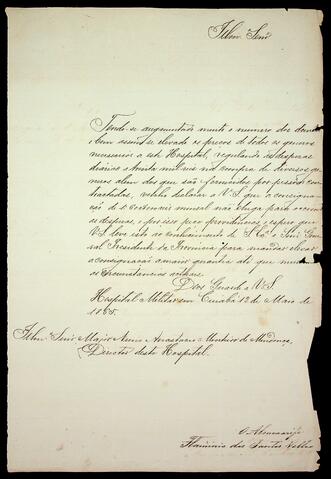 Illmo Senr
Tendo-se augmentado muito o numero dos doentes
bem assim se elevado os preços de todos os generos
necessarios a este Hospital, regulando as despesas
diarias a trinta mil reis na compra de diversos ge-
neros alem dos que são fornecidos por pessoas con-
tractadas, vou declarar a V.S. que a consigna-
ção de mensal não chega para occorrer
as despesas, e por isso peço providencias, e espero que
V.S. leve isto ao conhecimento de S. Exa o Senr Gene-
ral Presidente da Provincia para mandar elevar
a consignação a maior quantia até que mudem
as circumstancias actuaes.
Deos Guarde a V.S.
Hospital Militar em Cuiabá 12 de Maio de
1865.
Illmo Senr Major Anno Anastacio Monteiro de Mendonça,
Director deste Hospital.
O Almoxarife
Flaminio dos Santos